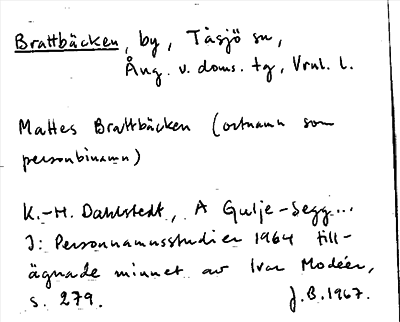 Brattbäcken, by, Tåsjö sn,
Ång. v. doms. tg, Vrnl. l.
Mattes Brattbäcken (ortnamn som
personbinamn)
K.-H. Dahlstedt, A Gulje-Segg...
I: Personnamnsstudier 1964 till-
ägnade minnet av Ivar Modéer,
s. 279.
J.B. 1967.